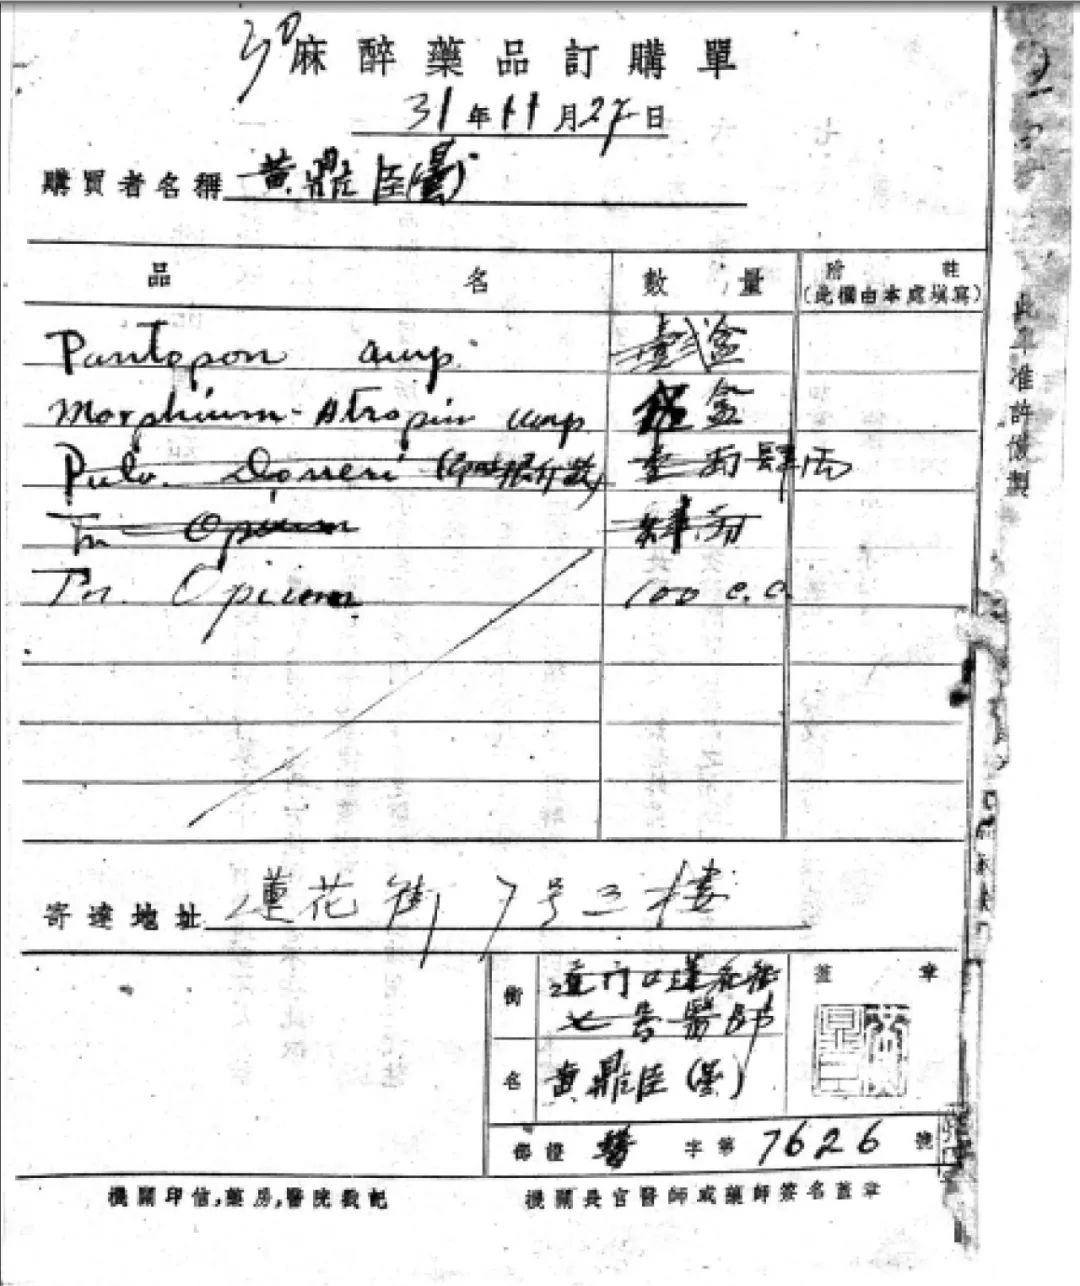 麻醉藥品訂購單
31年11月27日
購買者名稱 黃鼎臣
品名 數量 附註
(此欄由本處填寫)
Pantopon amp. 壹式盒
Morphium-Atropin amp. 盒
Pulv. Doveri 壹兩肆兩
Tr. Opium 肆兩
Tr. Opium 100 c.c.
寄達地址 蓮花街7号三樓
銜 道門口蓮花街
七号醫師
名 黃鼎臣
蓋章
部證 醫 字第 7626 號
機關印信,藥房,醫院戳記
機關長官醫師或藥師簽名蓋章
准許仿製